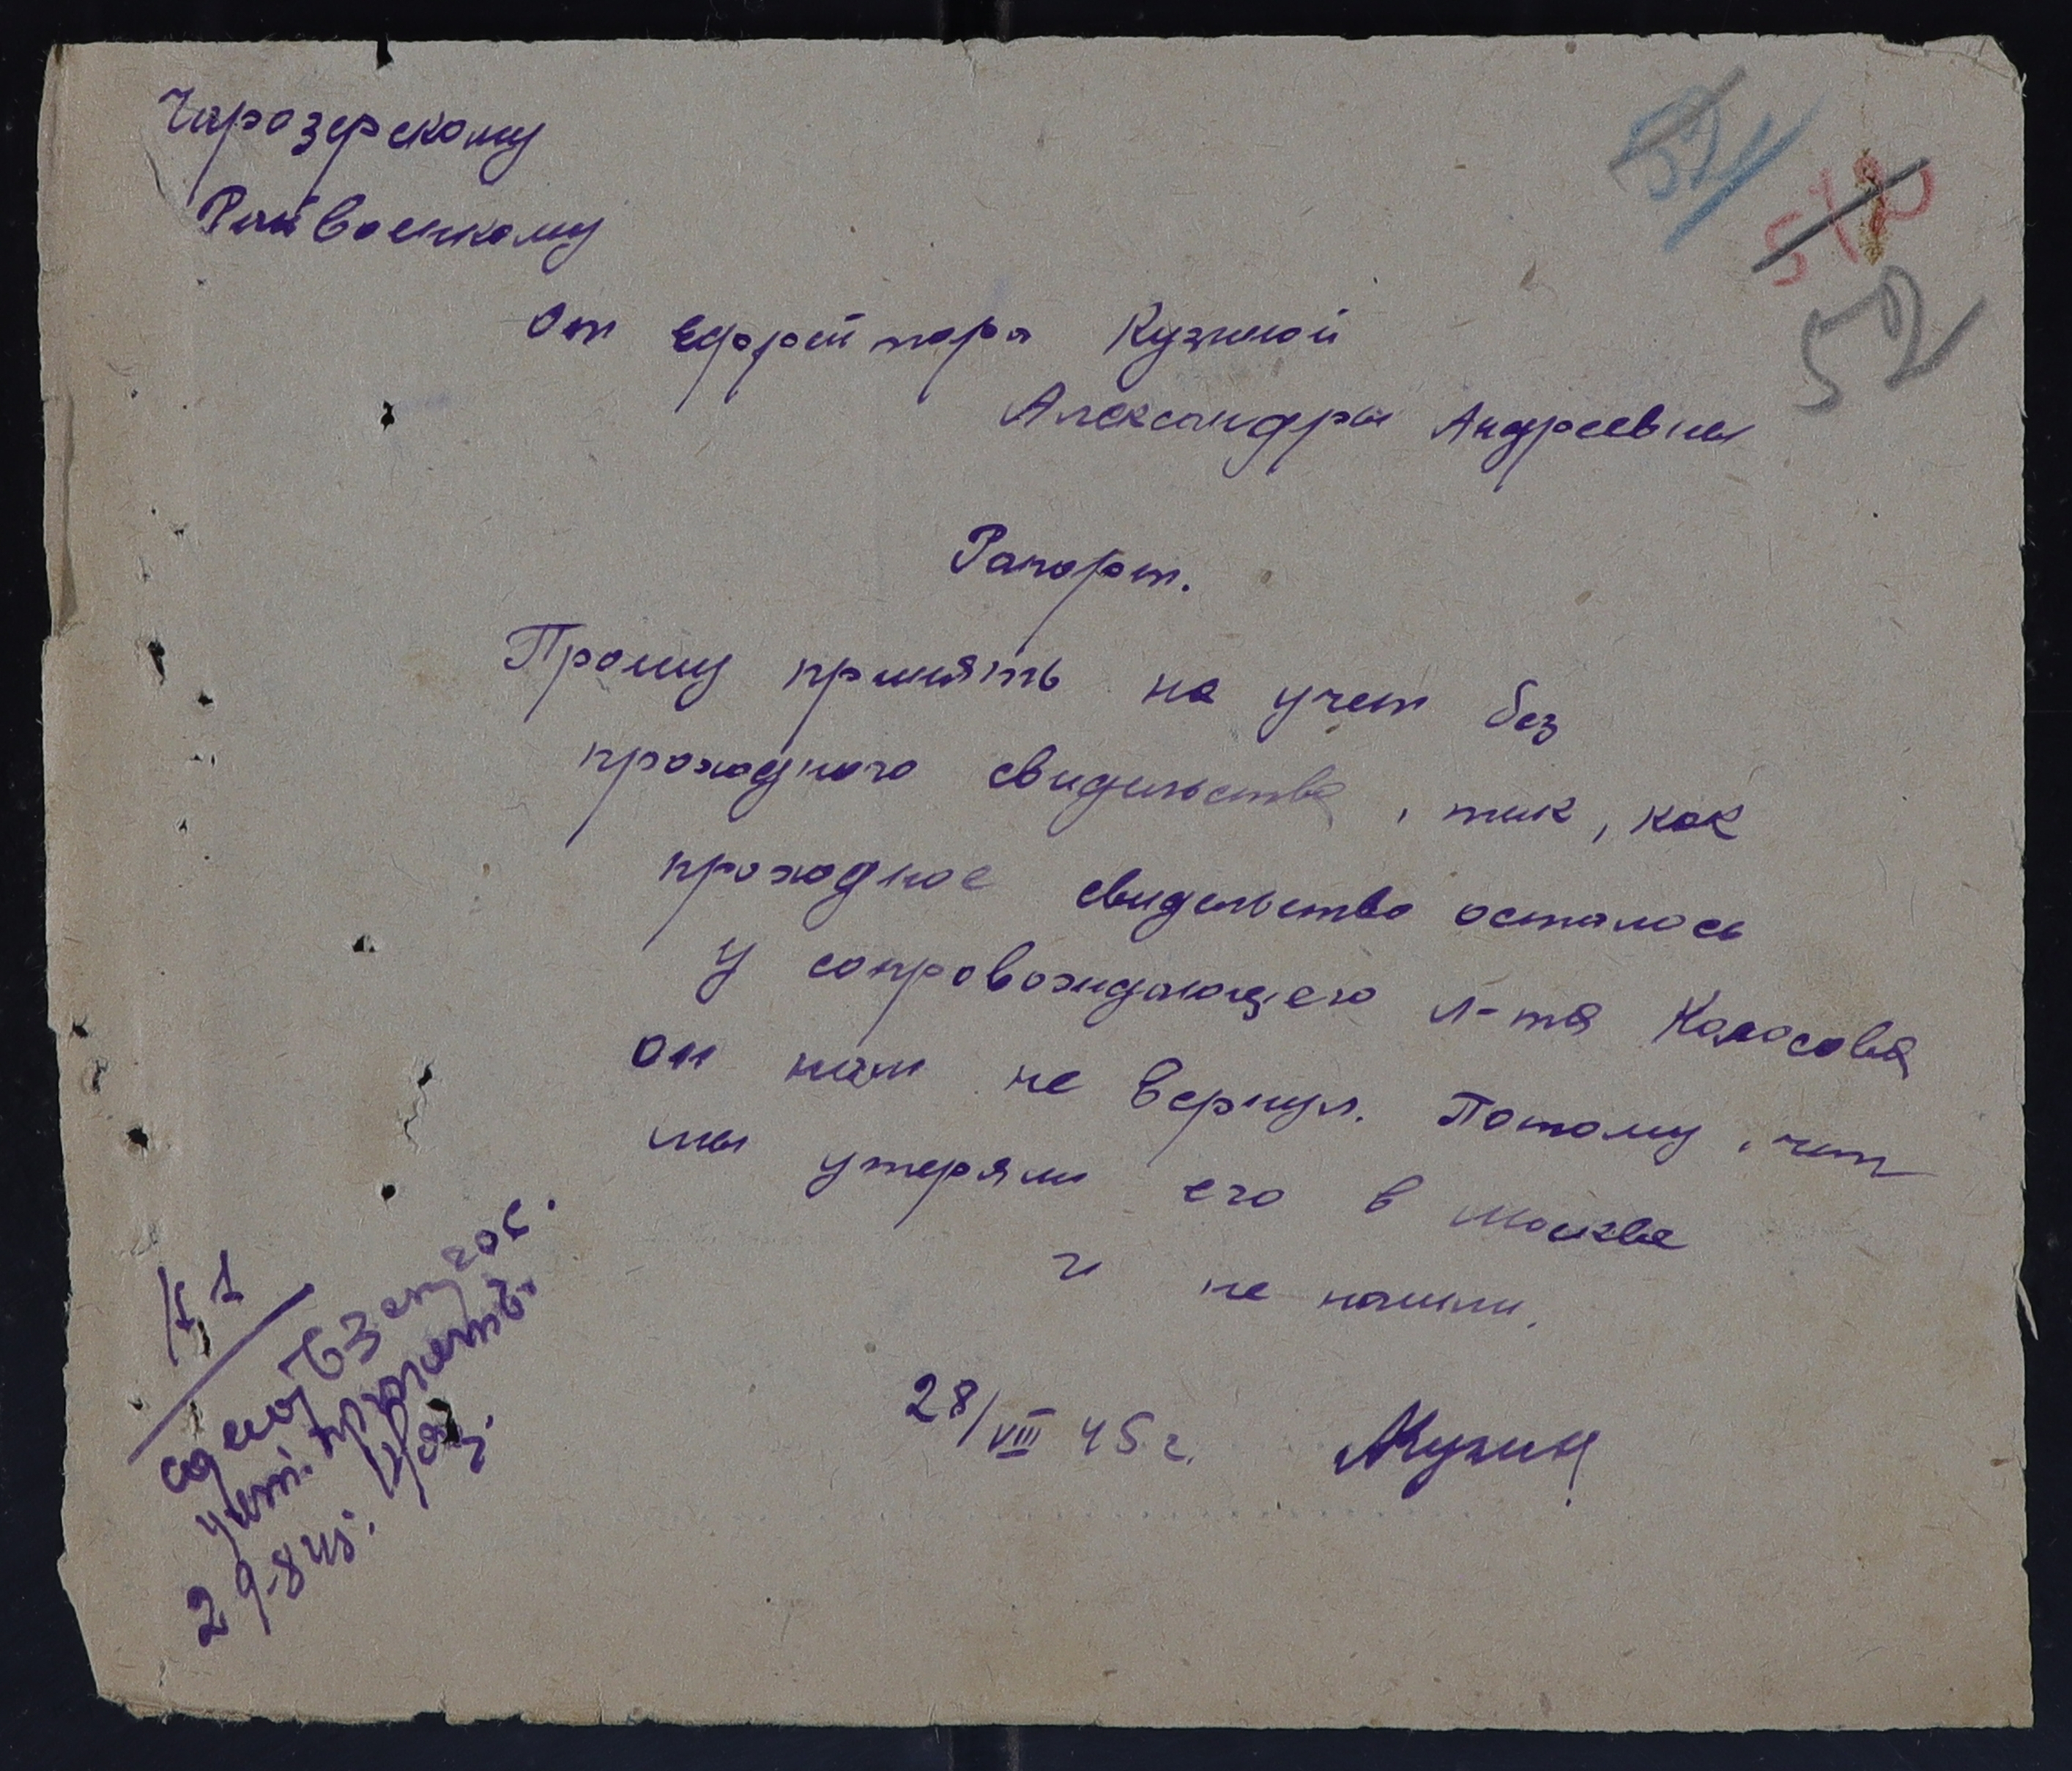 Чарозерскому
Райвоенкому
От ефрейтора Кузиной
Александры Андреевны
Рапорт.
Прошу принять на учет без
проходного свидельства, так, как
проходное свидельство осталось
у сопровождающего л-та Колосова
он нам не вернул. Потому, что
мы утеряли его в Москве
и не нашли.
28/VIII 45 г. АКузина
52
512
52
К 1
взять на
учет.
29-8 45.